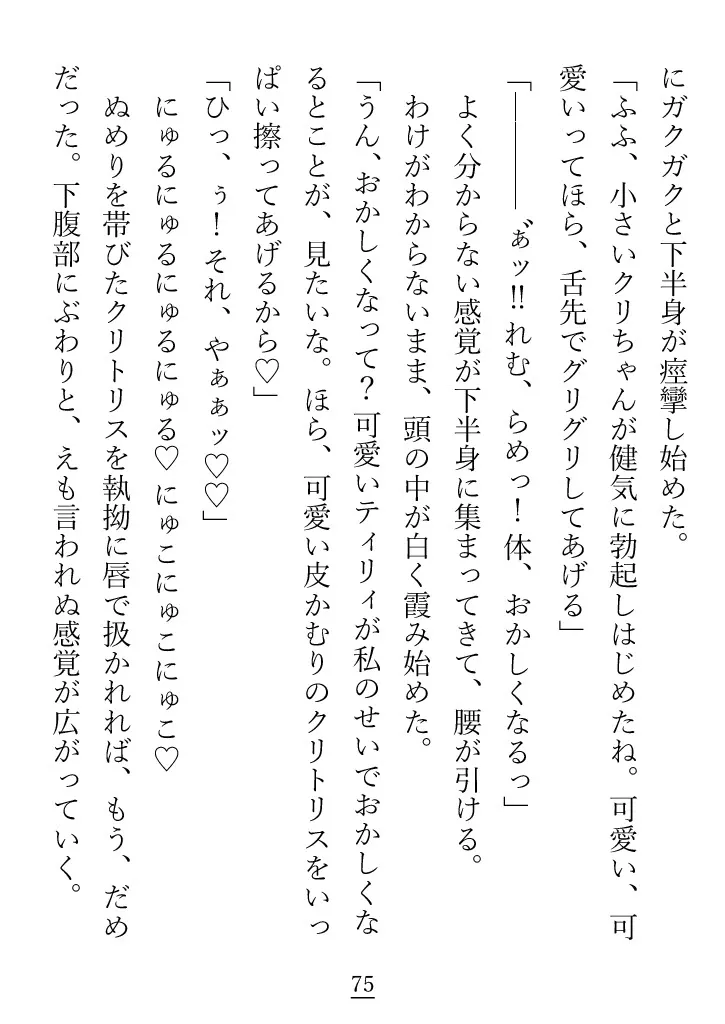 にガクガクと下半身が痙攣し始めた。
「ふふ、小さいクリちゃんが健気に勃起しはじめたね。可愛い、可
愛いってほら、舌先でグリグリしてあげる」
「――――゛ぁッ!!れむ、らめっ！体、おかしくなるっ」
よく分からない感覚が下半身に集まってきて、腰が引ける。
わけがわからないまま、頭の中が白く霞み始めた。
「うん、おかしくなって？可愛いティリィが私のせいでおかしくな
るとことが、見たいな。ほら、可愛い皮かむりのクリトリスをいっ
ぱい擦ってあげるから♡」
「ひっ、ぅ！それ、やぁぁッ♡♡」
にゅるにゅるにゅるにゅる♡にゅこにゅこにゅこ♡
ぬめりを帯びたクリトリスを執拗に唇で扱かれれば、もう、だめ
だった。下腹部にぶわりと、えも言われぬ感覚が広がっていく。
75